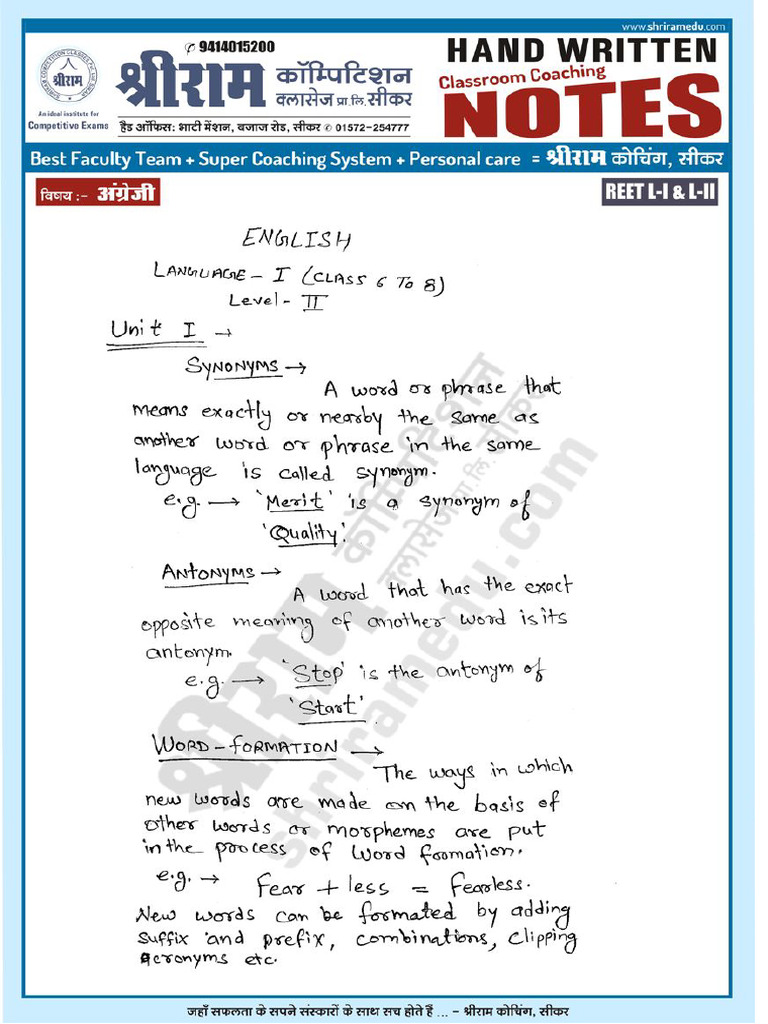 www.shriramedu.com
✆ 9414015200
श्रीराम
श्रीराम कॉम्पिटिशन
क्लासेज प्रा.लि. सीकर
An ideal institute for
Competitive Exams
हैड ऑफिस: भाटी मेंशन, बजाज रोड, सीकर ✆ 01572-254777
HAND WRITTEN
Classroom Coaching
NOTES
Best Faculty Team + Super Coaching System + Personal care = श्रीराम कोचिंग, सीकर
विषय :- अंग्रेजी
REET L-I & L-II
ENGLISH
LANGUAGE - I (CLASS 6 TO 8)
Level - II
Unit I →
SYNONYMS →
A word or phrase that
means exactly or nearby the same as
another word or phrase in the same
language is called synonym.
e.g. → 'Merit' is a synonym of
'Quality'.
ANTONYMS →
A word that has the exact
opposite meaning of another word is its
antonym.
e.g. → 'Stop' is the antonym of
'Start'
WORD - FORMATION →
The ways in which
new words are made on the basis of
other words or morphemes are put
in the process of Word formation.
e.g. → Fear + less = Fearless.
New words can be formated by adding
suffix and prefix, combinations, clipping
acronyms etc.
श्रीराम कॉम्पिटिशन
क्लासेज प्रा.लि. सीकर
shriramedu.com
जहाँ सफलता के सपने संस्कारों के साथ सच होते हैं ... - श्रीराम कोचिंग, सीकर